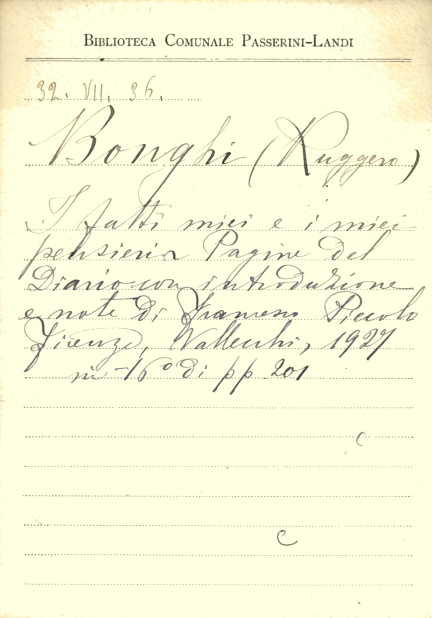 BIBLIOTECA COMUNALE PASSERINI-LANDI
32. VII. 36.
Bonghi (Ruggero)
I fatti miei e i miei
pensieri Pagine del
Diario con introduzione
e note di Francesco Piccolo
Firenze, Vallecchi, 1927
in -16° di pp 201
c
c